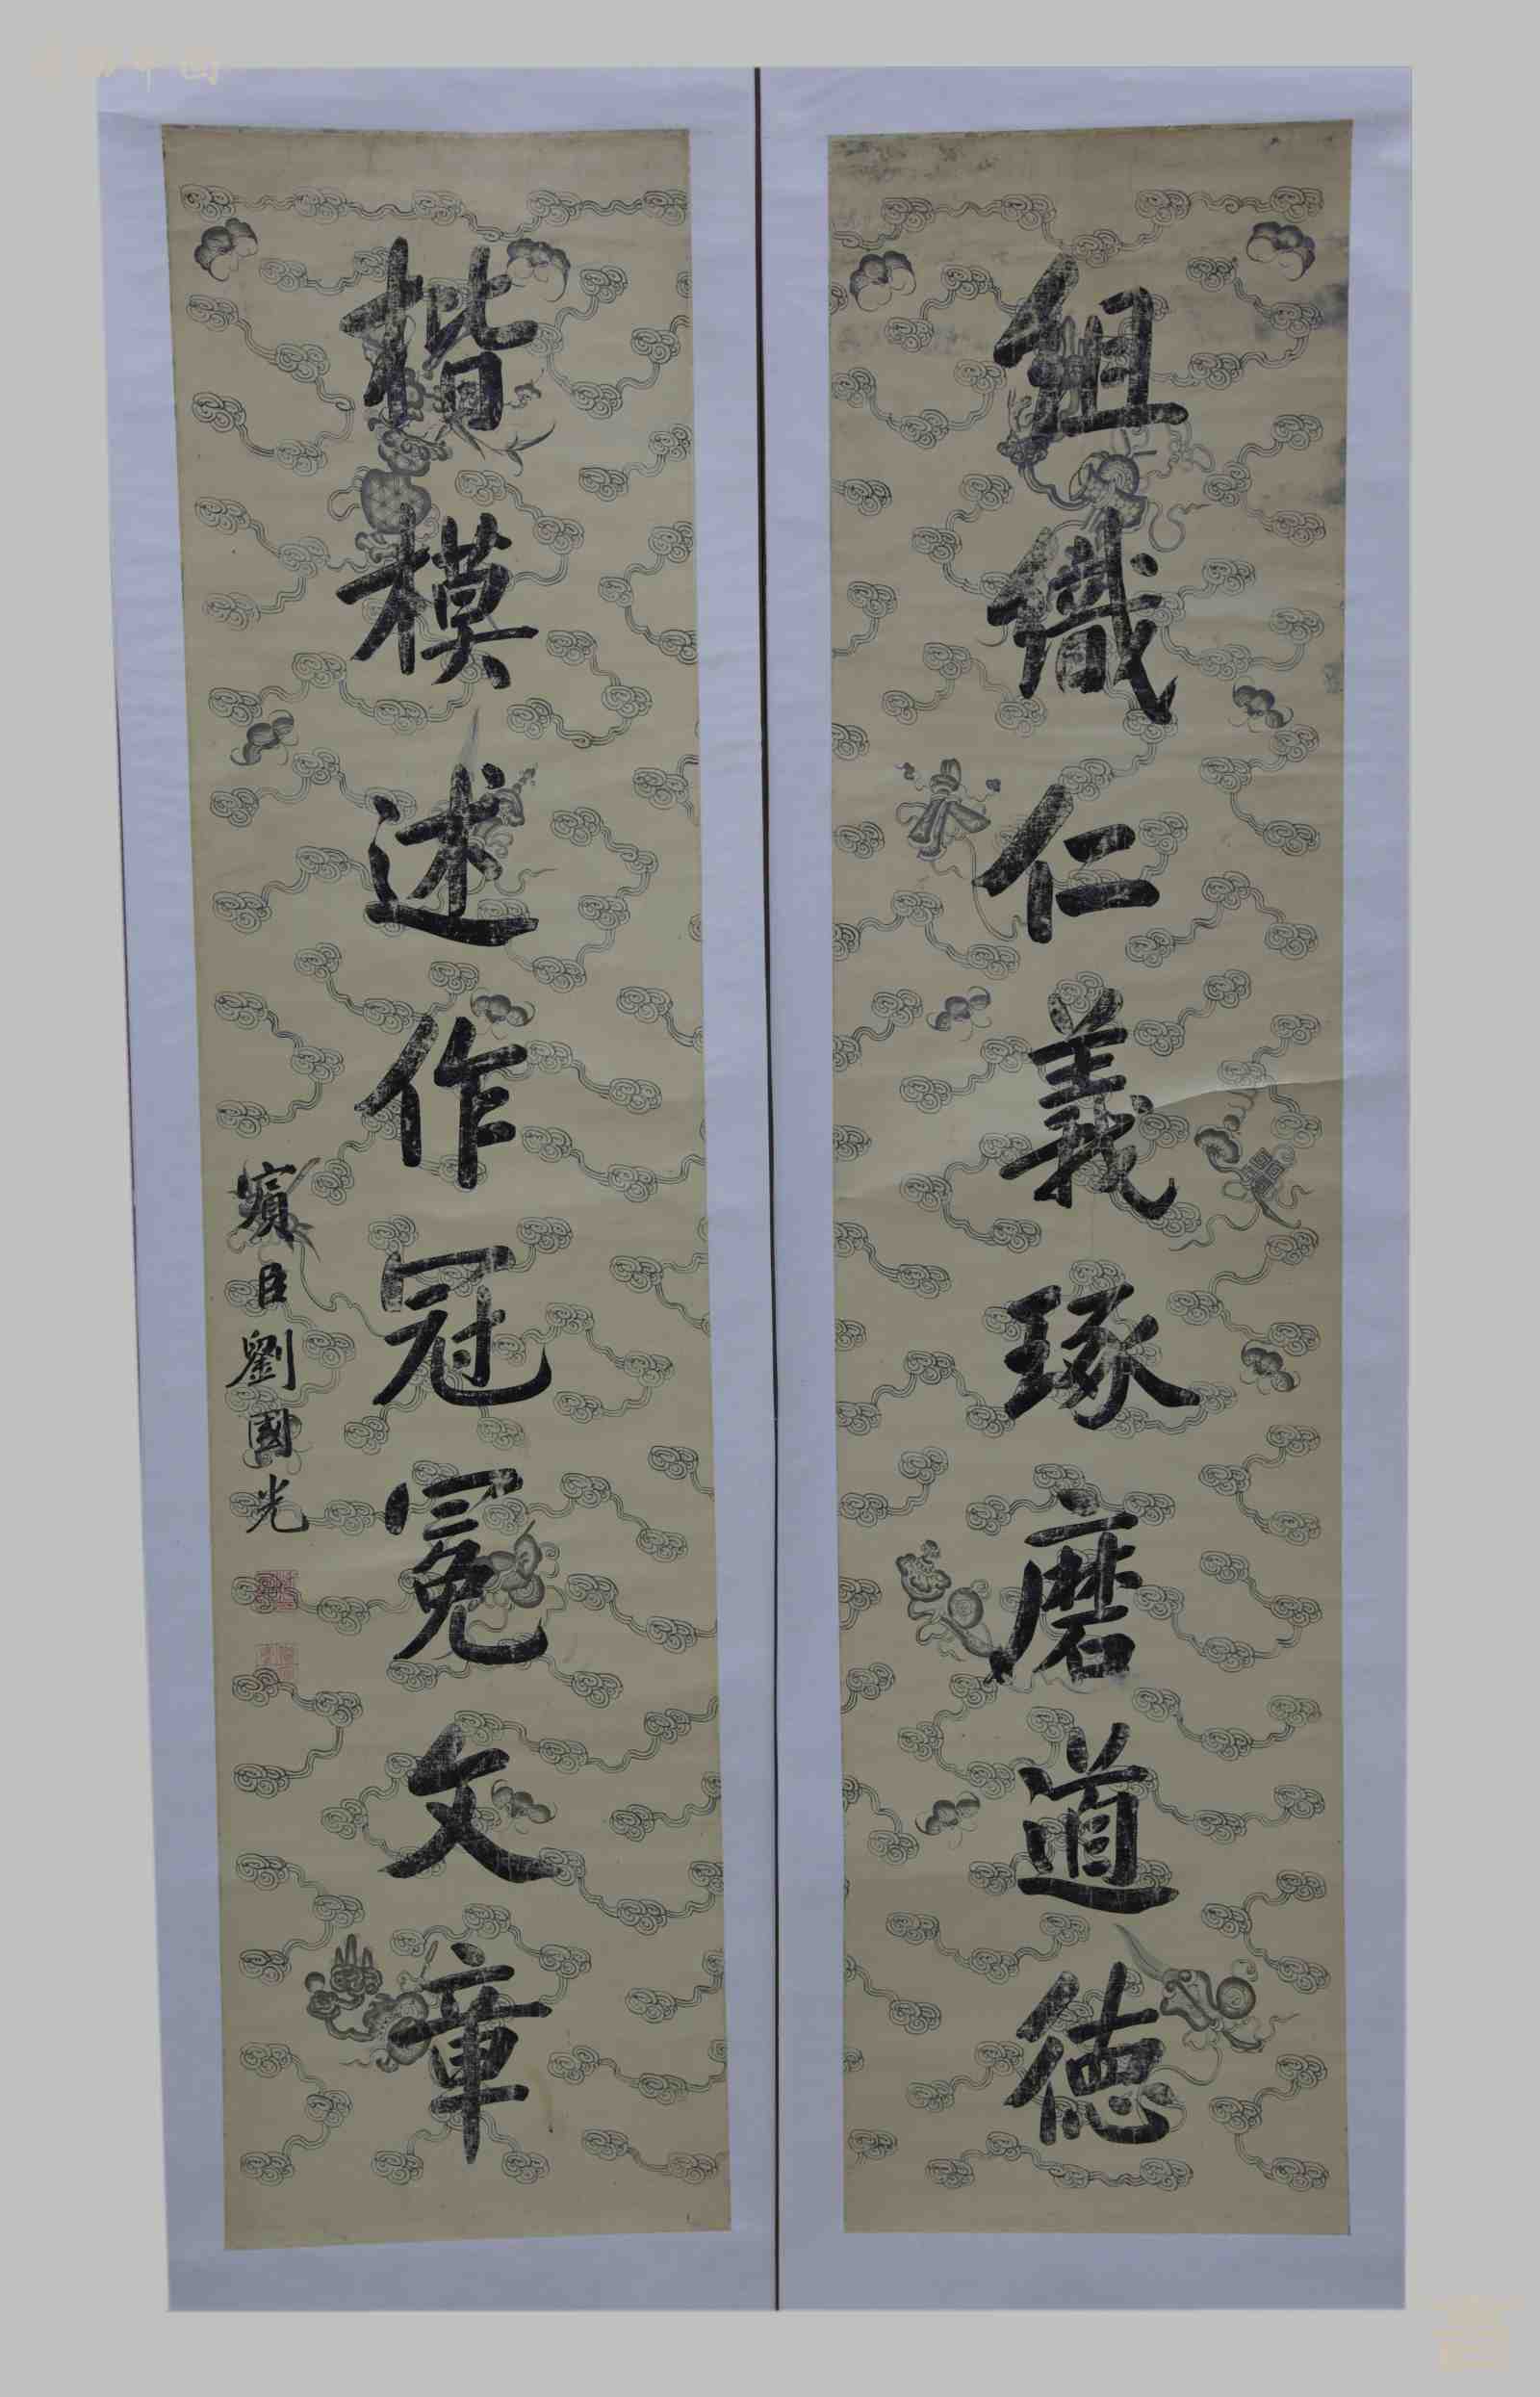 組織仁義琢磨道德
楷模述作冠冕文章
賓臣劉國光